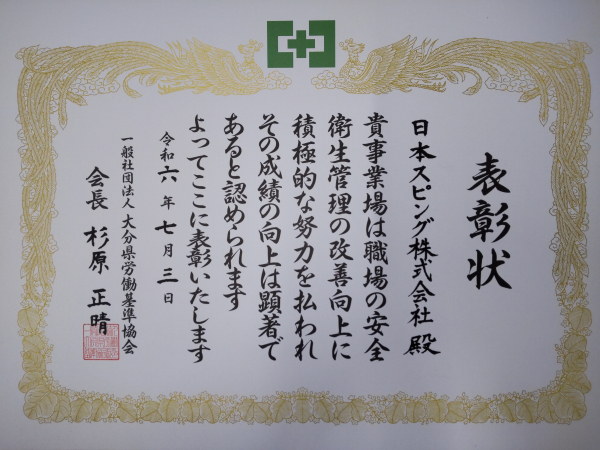 表彰状
日本スピング株式会社 殿
貴事業場は職場の安全
衛生管理の改善向上に
積極的な努力を払われ
その成績の向上は顕著で
あると認められます
よってここに表彰いたします
令和六年七月三日
一般社団法人 大分県労働基準協会
会長 杉原 正晴